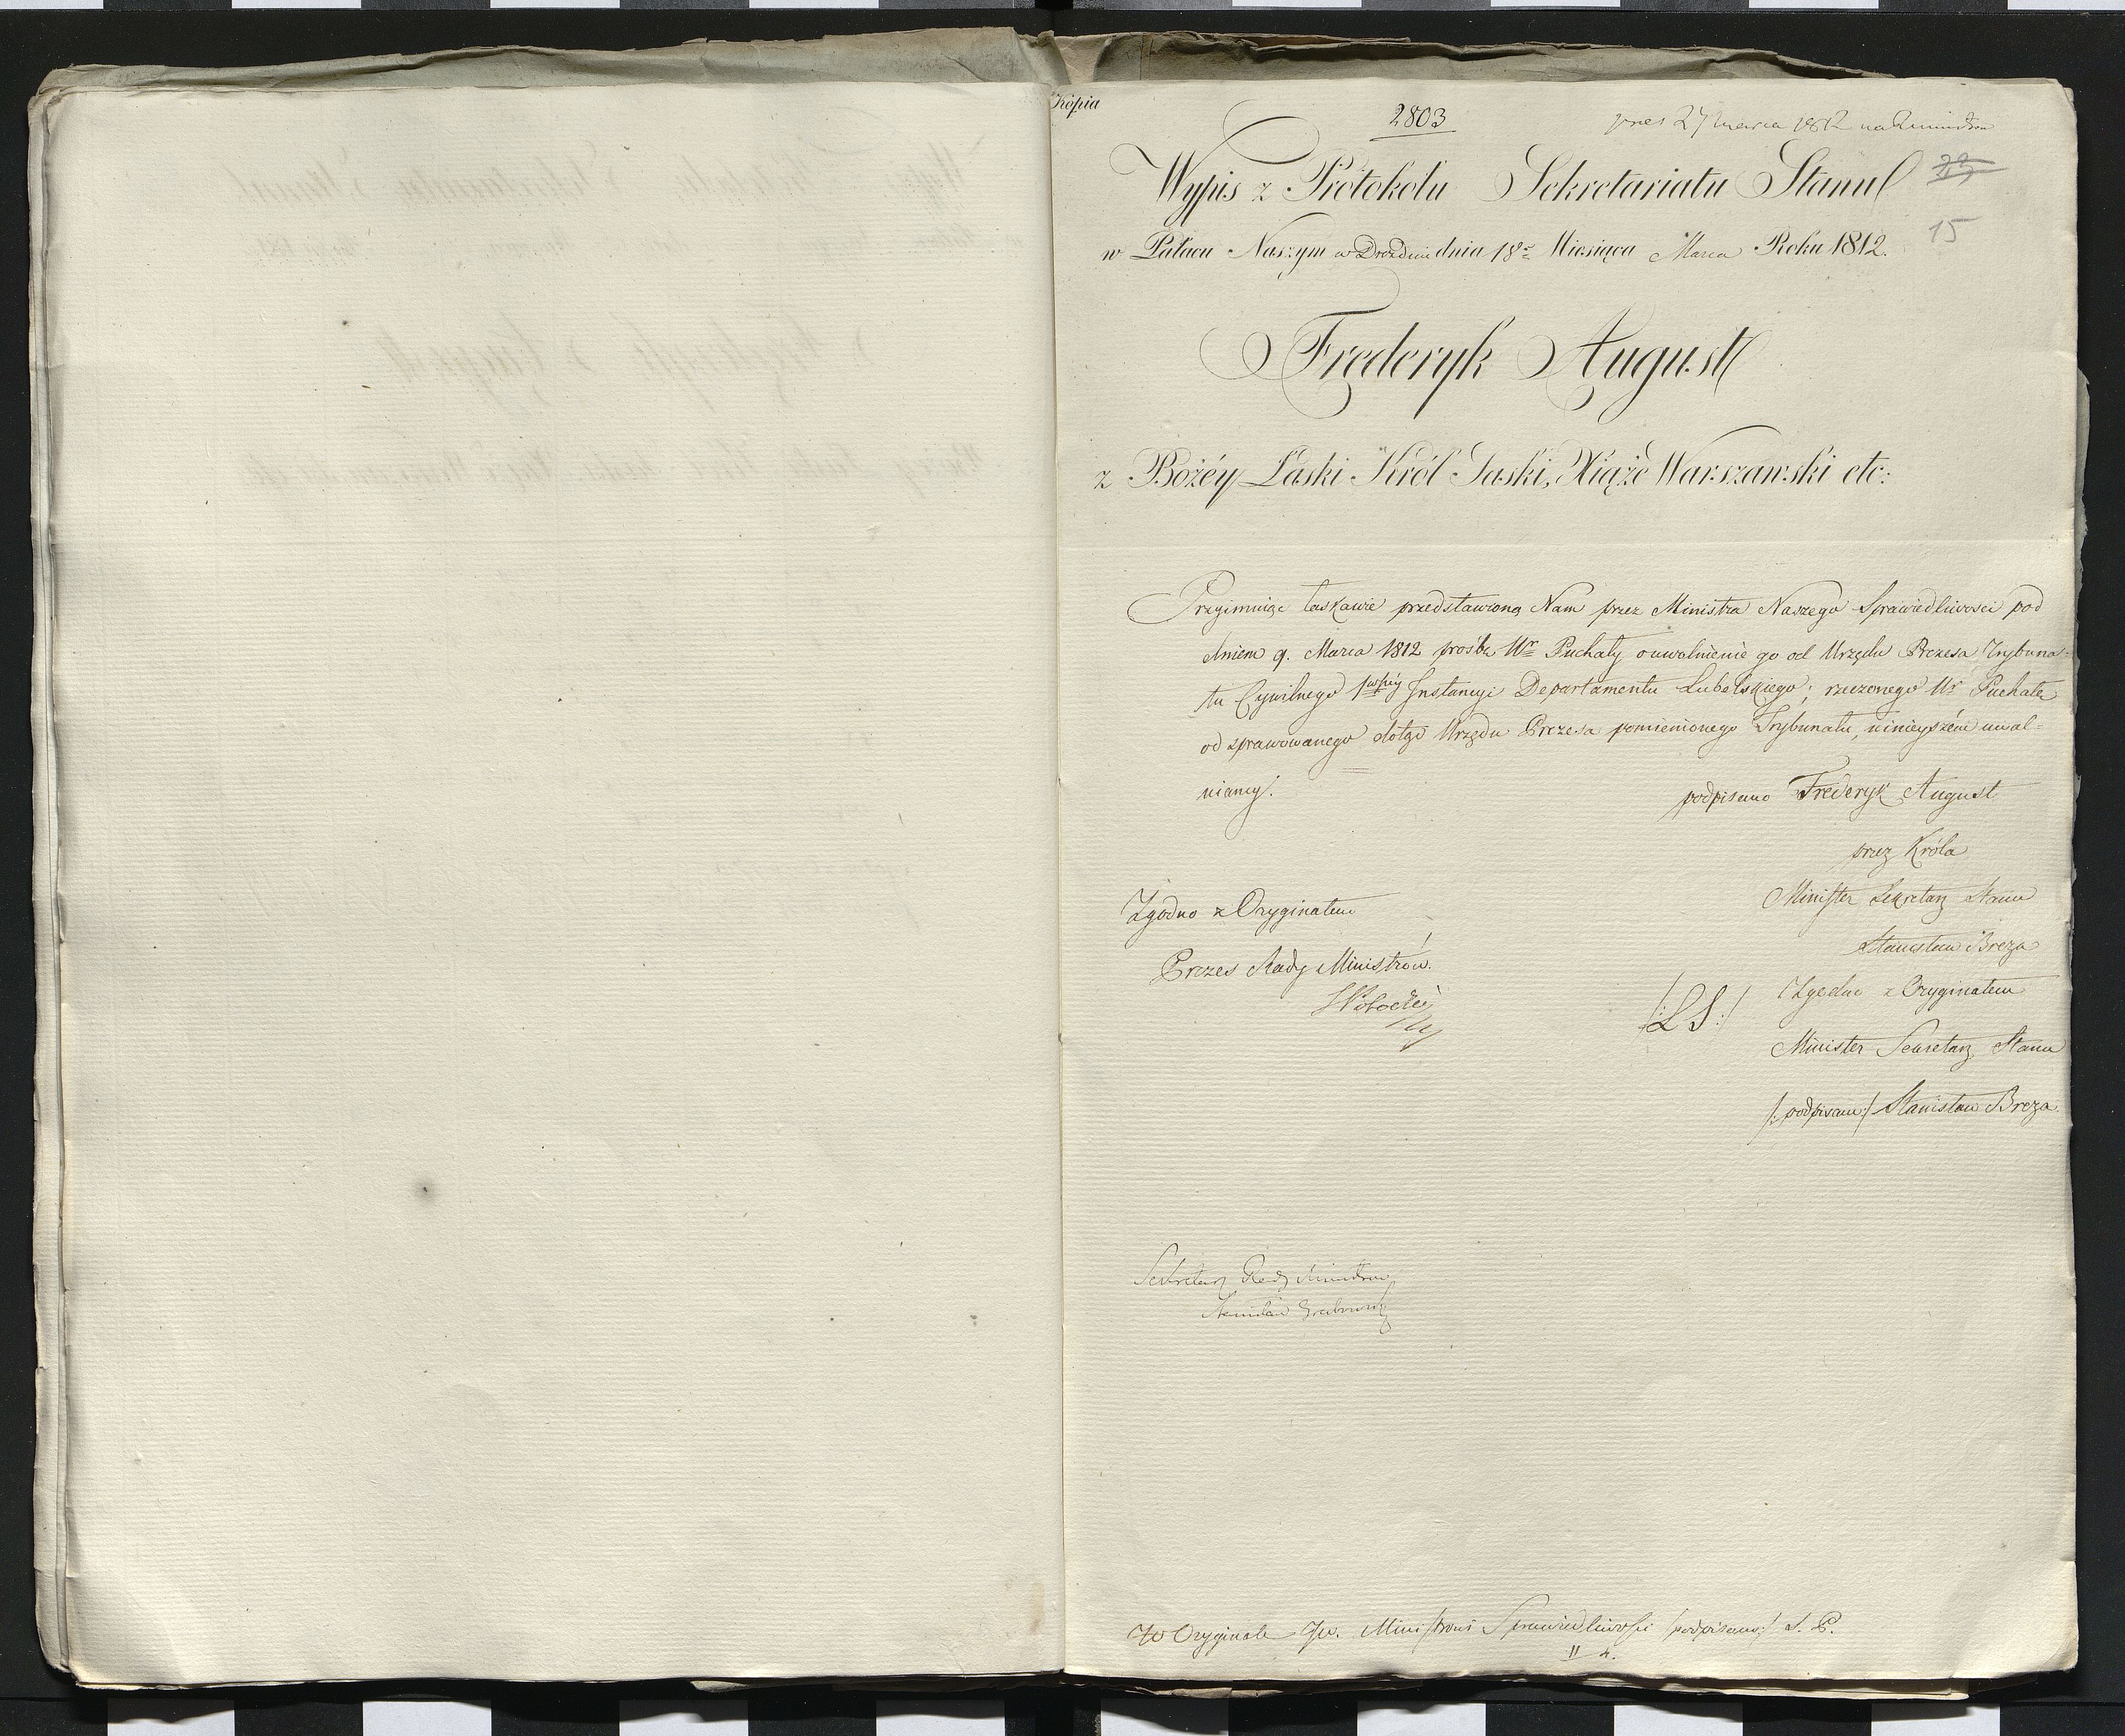 Kopia
2803
pres 27 Marca 1812 na
23
Wypis z Protokołu Sekretariatu Stanu
15
w Pałacu Naszym w Dreźdnie dnia 18º Miesiąca Marca Roku 1812.
Frederyk August
z Bożéy Łaski Król Saski, Xiąże Warszawski etc:
Przyimuiąc łaskawie przedstawioną Nam przez Ministra Naszego Sprawiedliwosci pod
dniem 9. Marca 1812 prośbę Ur Puchały o uwolnienie go od Urzędu Prezesa Trybuna=
łu Cywilnego 1wszéy Instancyi Departamentu Lubelskiego; rzeczonego Ur Puchałę
od sprawowanego dotąd Urzędu Prezesa pomienionego Trybunału, ninieyszém uwal=
niamy.
podpisano Frederyk August
przez Króla
Minister Sekretarz Stanu
Stanisław Breza
Zgodno z Oryginałem
Prezes Rady Ministrów.
SPotocki
/:LS:/
Zgodno z Oryginałem
Minister Sekretarz Stanu
/:podpisano:/ Stanisław Breza.
Sekretarz Rady Ministrow
Stanisław Grabowski
W Oryginale JW. Ministrowi Sprawiedliwości /podpisano:/ S. P.